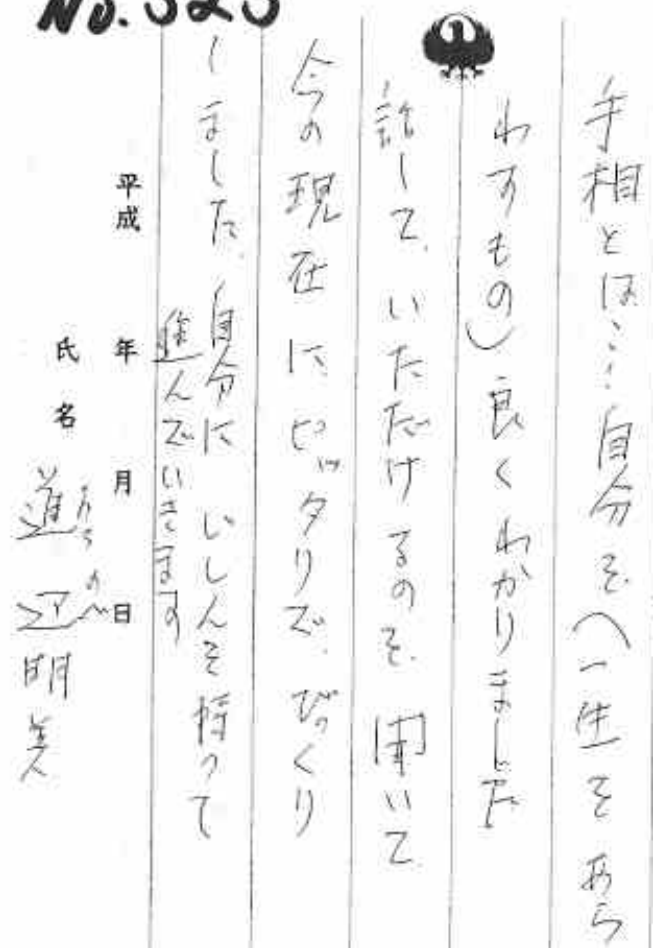 No.323
手相とは…自分を(一生をあら
わすもの)良くわかりました
話して、いただけるのを、聞いて
今の現在に、ピッタリで、びっくり
しました、自分に じしんを持って
進んでいきます
平成 年 月 日
氏名 道辺明美
みちのべ